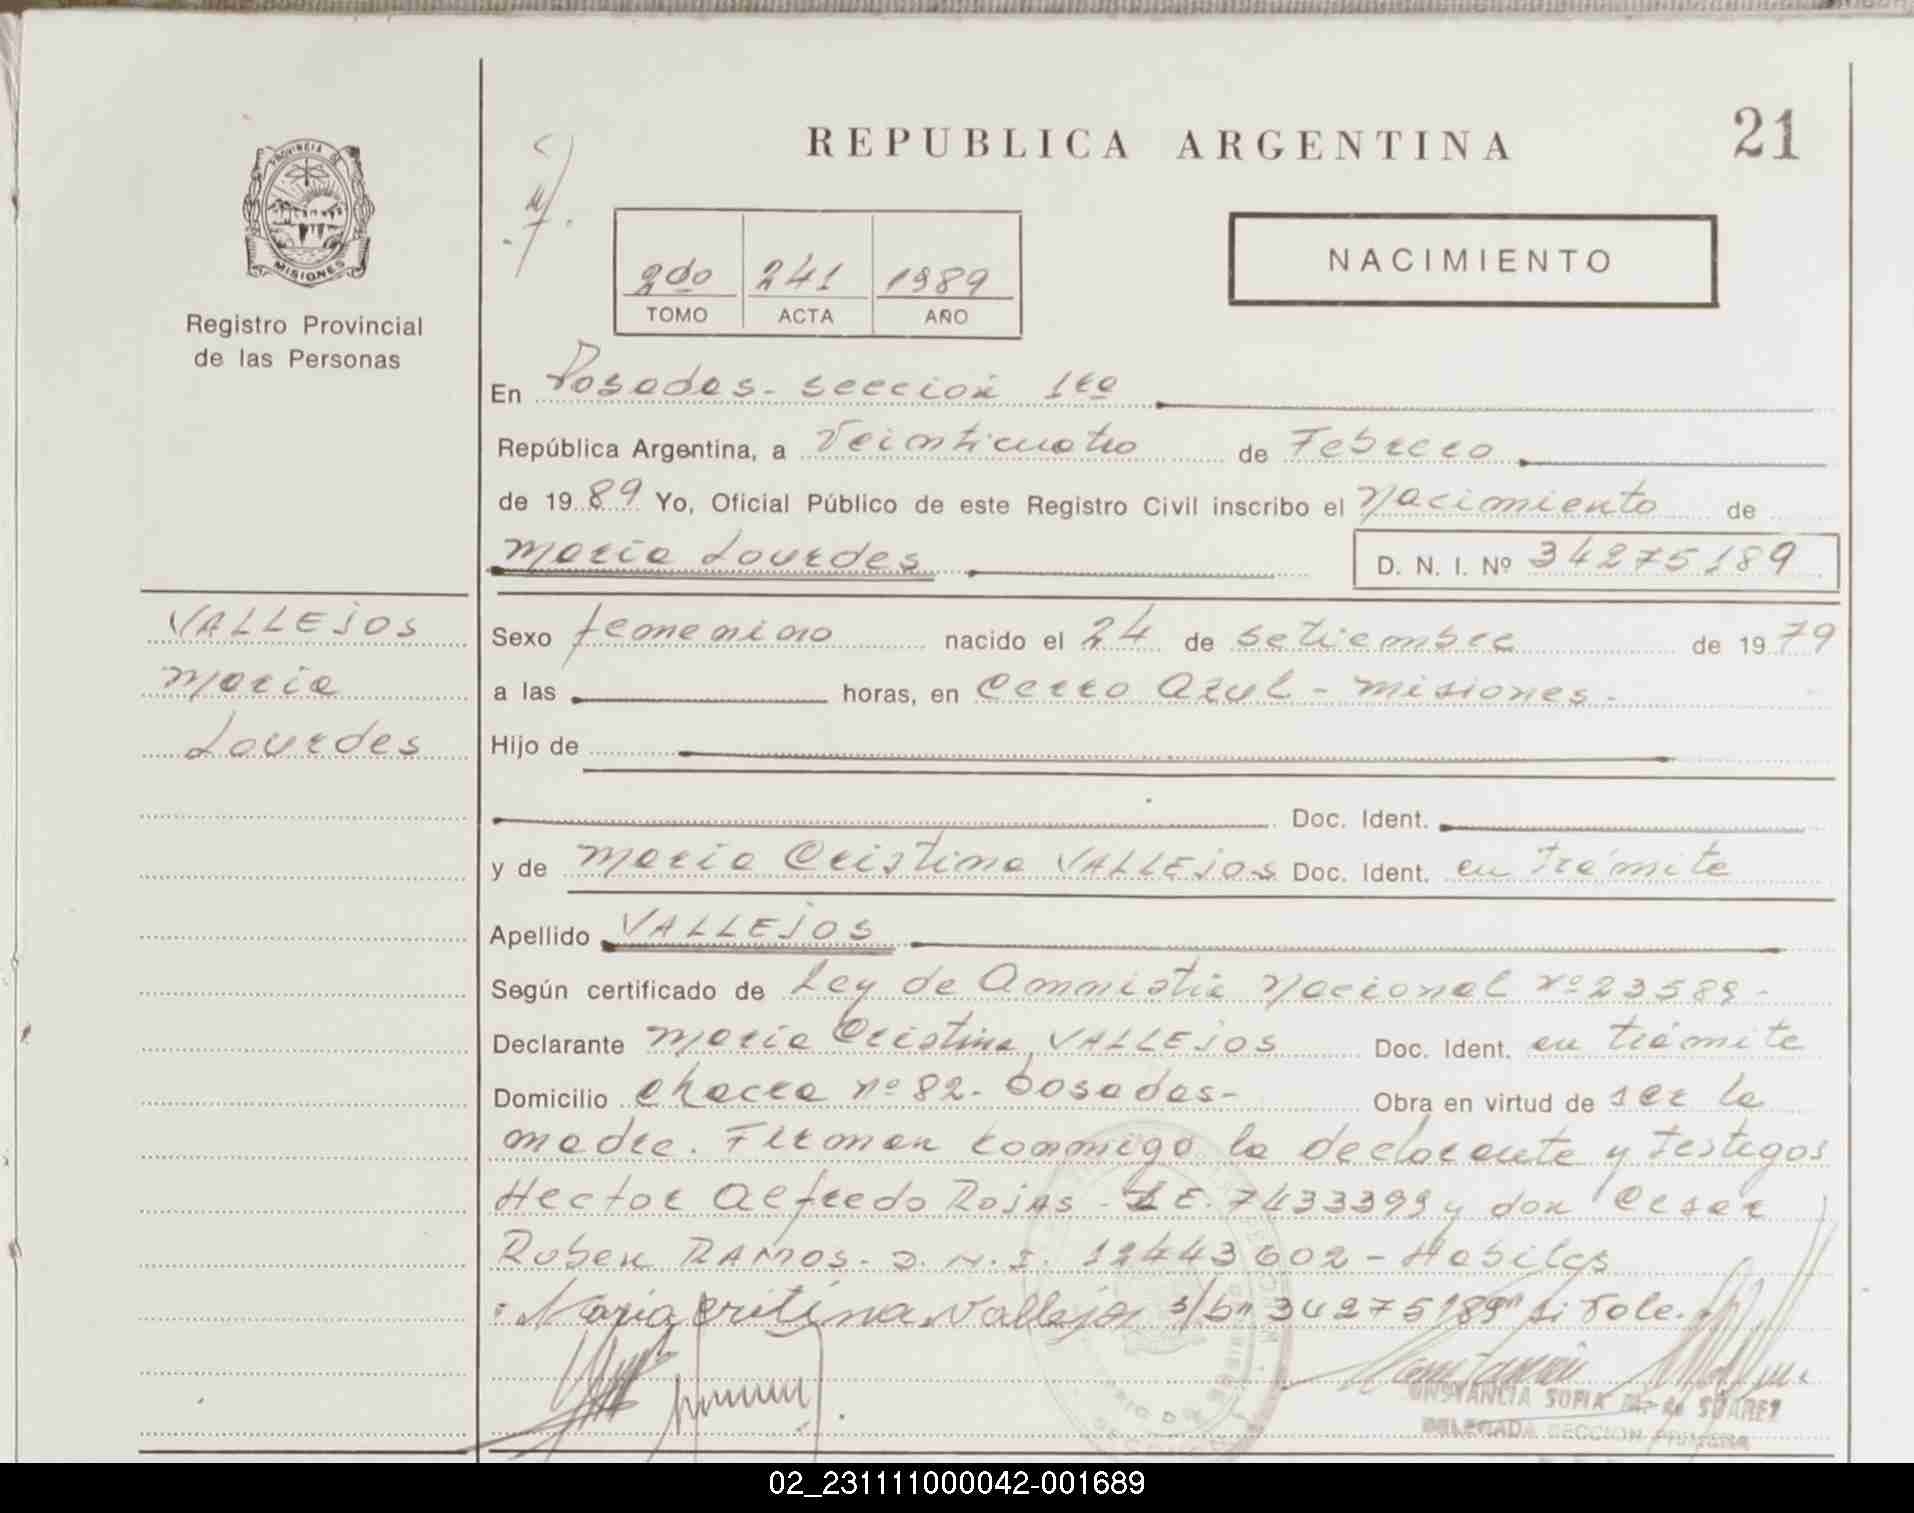 REPUBLICA ARGENTINA
21
PROVINCIA DE
MISIONES
Registro Provincial
de las Personas
2do 241 1989
TOMO ACTA AÑO
NACIMIENTO
En Posadas - seccion 1ra
República Argentina, a Veinticuatro de Febrero
de 1989 Yo, Oficial Público de este Registro Civil inscribo el Nacimiento de
Maria Lourdes D. N. I. Nº 34275189
VALLEJOS
Maria
Lourdes
Sexo femenino nacido el 24 de Setiembre de 1979
a las horas, en Cerro Azul - Misiones.
Hijo de
Doc. Ident.
y de Maria Cristina VALLEJOS Doc. Ident. en trámite
Apellido VALLEJOS
Según certificado de Ley de Amnistia Nacional Nº 23589 -
Declarante Maria Cristina VALLEJOS Doc. Ident. en trámite
Domicilio Chacra nº 82 - Posadas - Obra en virtud de ser la
madre. Firman conmigo la declarante y testigos
Hector Alfredo Rojas - L.E. 7433399 y don Cesar
Ruben RAMOS - D.N.I. 12443602 - Habiles
Maria critina Vallejo s/bº 34275189" Si Vale.
CONSTANCIA SOFIA de SUAREZ
DELEGADA SECCION PRIMERA
02_231111000042-001689